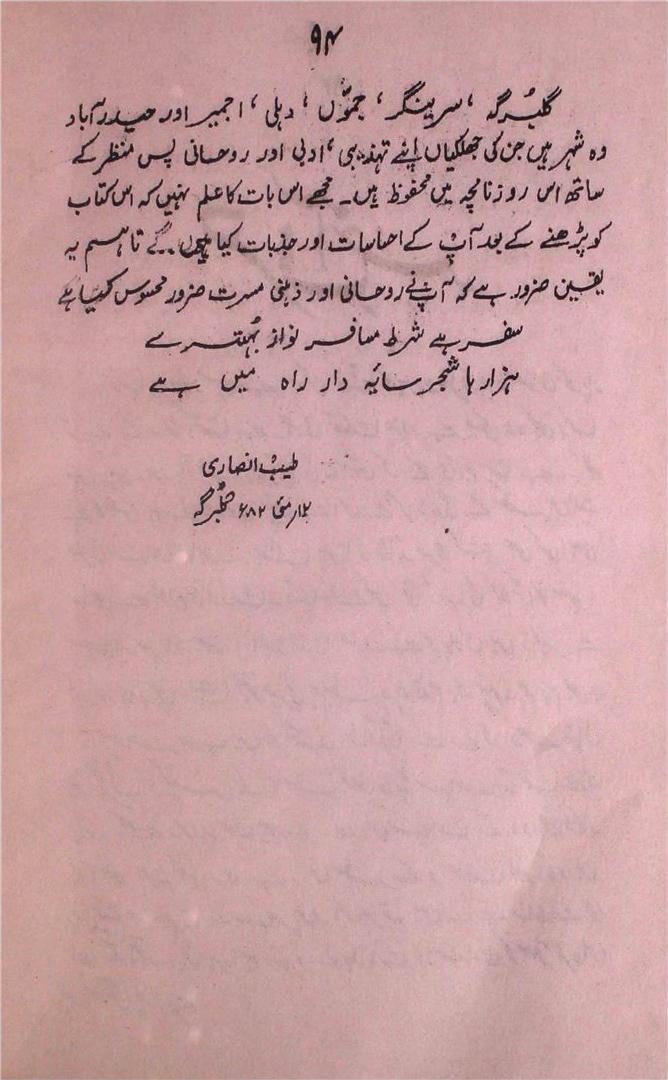 ۹۴
گلبرگہ ، سرینگر ، جموّں ، دہلی ، اجمیر اور حیدرآباد
وہ شہر ہیں جن کی جھلکیاں اپنے تہذیبی ، ادبی اور روحانی پس منظر کے
ساتھ اس روزنامچہ میں محفوظ ہیں ۔ مجھے اس بات کا علم نہیں کہ اس کتاب
کو پڑھنے کے بعد آپ کے احساسات اور جذبات کیا ہوں گے تاہم یہ
یقین ضرور ہے کہ آپ نے روحانی اور ذہنی مسرت ضرور محسوس کیا ہے
سفر ہے شرط مسافر نواز بہُتیرے
ہزار ہا شجر سایہ دار راہ میں ہے
طیب انصاری
۱۲ر مئی ۸۲ء گلبرگہ